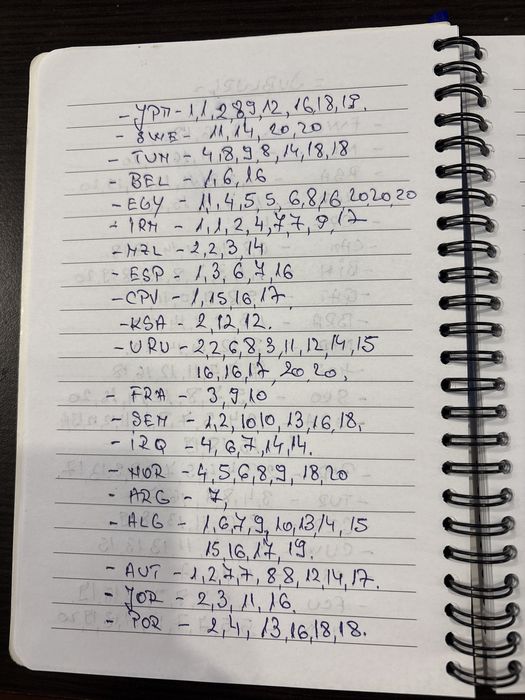 - JPN - 1,1,2,8,9,12, 16,18,19.
- SWE - 11,14, 20,20
- TUN - 4,8,9,8,14,18,18
- BEL - 1,6,16
- EGY - 11,4,5,5, 6,8,16 20,20,20
- IRN - 1,1,2,4,7,7,9,17
- NZL - 2,2,3,14
- ESP - 1,3,6,7,16
- CPV - 1,15,16,17,
- KSA - 2,12,12.
- URU - 2,2,6,8,3,11,12,14,15
16,16,17, 20,20,
- FRA - 3,9,10
- SEN - 1,2,10,10,13,16,18,
- IRQ - 4,6,7,14,14.
- NOR - 4,5,6,8,9, 18,20
- ARG - 7,
- ALG - 1,6,7,9,10,13,14,15
15,16,17, 19.
- AUT - 1,2,7,7, 8,8,12,14,17.
- JOR - 2,3,11,16.
- POR - 2,4, 13,16,18,18.